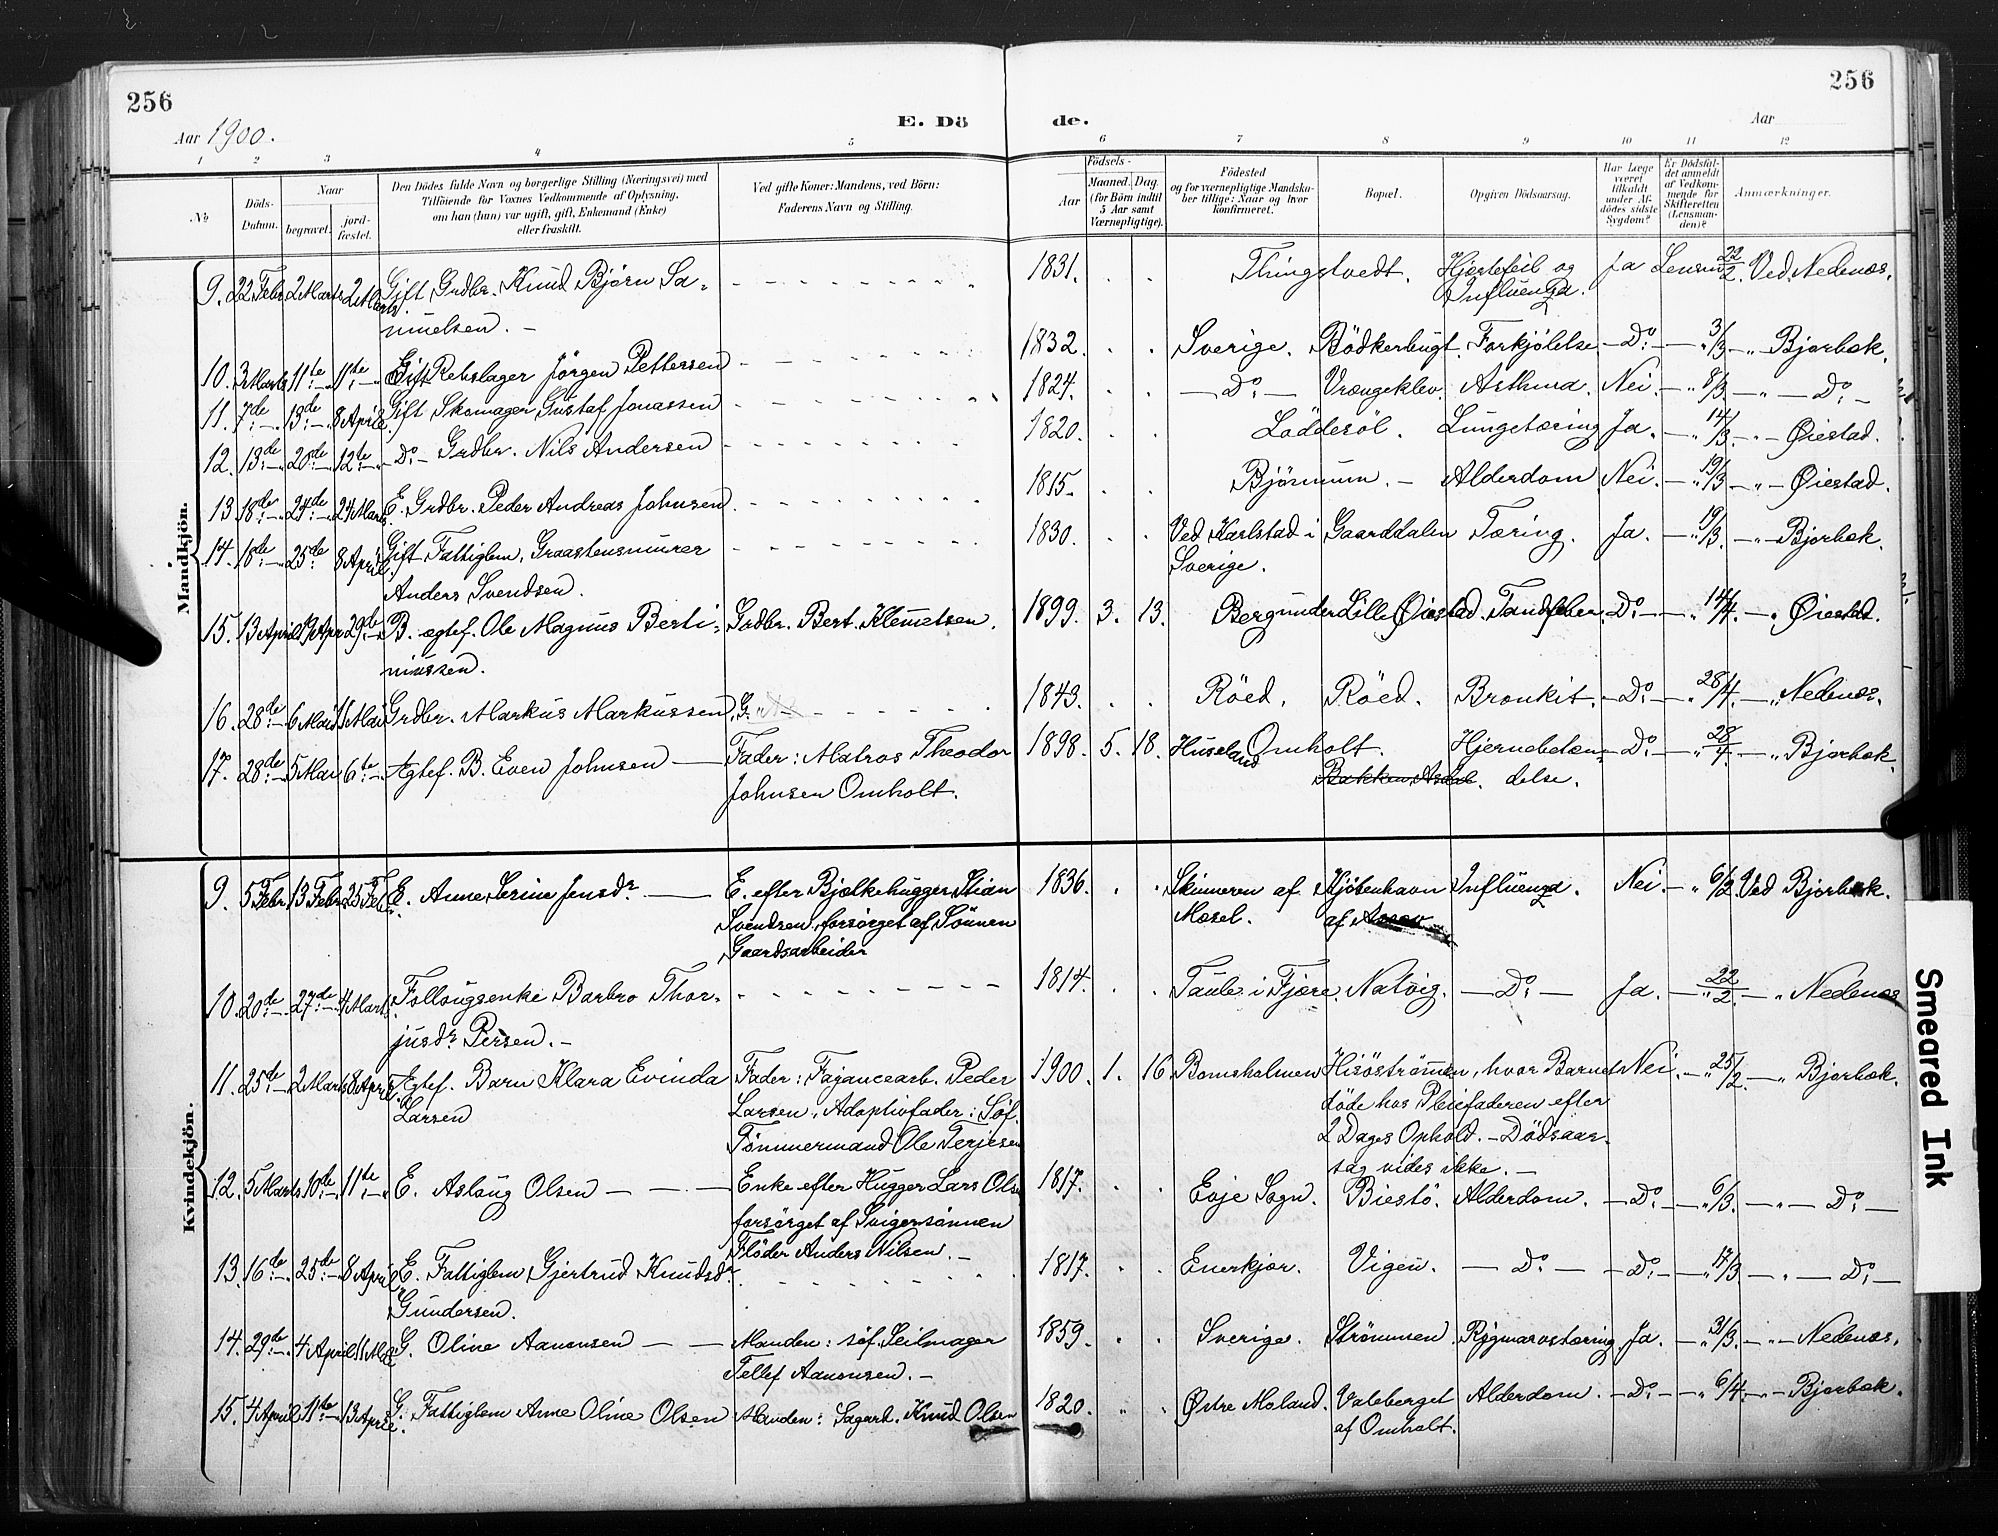 256
256
Aar 1900.
E. Dö
de.
Aar
1 2 3 4 5 6 7 8 9 10 11 12
No
Döds-Datum.
Naar
begravet.
jord-fæstet.
Den Dödes fulde Navn og borgerlige Stilling (Næringsvei) med
Tilföiende for Voxnes Vedkommende af Oplysning,
om han (hun) var ugift, gift, Enkemand (Enke)
eller fraskilt.
Ved gifte Koner: Mandens, ved Börn:
Faderens Navn og Stilling.
Födsels-
Aar
Maaned. Dag.
(for Börn indtil
5 Aar samt
Værnepligtige).
Födested
og for værnepligtige Mandska-
ber tillige: Naar og hvor
konfirmeret.
Bopæl.
Opgiven Dödsaarsag.
Har Læge
været
tilkaldt
under Af-
dödes sidste
Sygdom?
Er Dödsfal-
det anmeldt
af Vedkom-
mende for
Skifteretten
(Lensman-
den)?
Anmærkninger.
Mandkjön.
9. 22 Febr 2 Marts 2 Marts Gift Grdbr. Knud Björn Sa- 1831. Thingstvedt. Hjertefeil og Ja Lensm 22/2. Ved. Nedenæs.
muelsen. — Influenza.
10. 3 Marts 11te 11te Gift Rebslager Jörgen Pettersen 1832. Sverige. Bödkerbugt. Forkjölelse Do 3/3 Bjorbæk.
11. 7de 13de 8 April. Gift Skomager Gustaf Jonassen 1824. Do Vrængeklev. Asthma. Nei. 8/3 Do
12. 13de 20de 12te Do Grdbr. Nils Andersen 1820. Löddesöl. Lungetæring Ja. 14/3 Øiestad.
13 18de 24de 24 Marts E. Grdbr. Peder Andreas Johnsen 1815. Björnmum. Alderdom. Nei. 19/3 Øiestad.
14. 18de 25de 8 April Gift Fattiglem, Graastensmurer 1830. Ved Karlstad i Gaarddalen Tæring. Ja. 19/3. Bjorbæk.
Anders Svendsen. Sverige.
15. 13 April 19 Apr 29de B. ægtef. Ole Magnus Berti- Grdbr. Bert. Klemetsen. 1899. 3. 13. Berg under Lille Øiestad. Tandfeber. Do 14/4. Øiestad.
niussen.
16. 28de 6 Mai 1 Mai Grdbr. Markus Markussen, G. 1843. Röed. Röed. Bronkit. Do 28/4. Nedenæs.
17. 28de 5 Mai 6te Ægtef. B. Even Johnsen — Fader: Matros Theodor 1898. 5. 18. Huseland Omholt. Hjernebetæn- Do 28/4 Bjorbæk.
Johnsen Omholt. Bakken Asdal. delse.
Kvindekjön.
9. 5 Febr. 13 Febr 25 Febr. E. Anne Serine Jensdr. — E. efter Bjælkehugger Stian 1836. Skinneren af Kjöbenhavn Influenza. Nei. 6/2 Ved Bjorbæk.
Svendsen, forsörget af Sönnen Mæsel. af
Gaardsarbeider
10. 20de 27de 4 Marts. Follaugsenke Barbro Thor- 1814. Taule i Fjære. Natvig. Do Ja. 22/2. Nedenæs
jusdr. Persen. —
11. 25de 2 Marts 8 April. Ægtef. Barn Klara Evinda Fader: Fajancearb. Peder 1900. 1. 16. Bomsholmen Hisöströmmen, hvor Barnet Nei. 25/2. Bjorbæk.
Larsen Larsen, Adoptivfader: Söf. döde hos Pleiefaderen efter
Tömmermand Ole Terjesen 2 Dages Ophold. — Dödsaar-
sag vides ikke. —
12. 5 Marts 10de 11te E. Aslaug Olsen — Enke efter Hugger Lars Olsen 1817. Evje Sogn. Biestö. Alderdom. Do 6/3. Do
forsörget af Svigersönnen
Flöder Anders Nilsen. —
13. 16de 25de 8 April E. Fattiglem Gjertrud Knudsdr 1817. Enerkjær. Vigen. Do Do 17/3. Do
Gundersen.
14. 29de 4 April 11 Mai G. Oline Aanonsen — Manden: söf. Seilmager 1859. Sverige. Strömmen. Rygmarvstæring Ja. 31/3. Nedenæs.
Tellef Aanonsen. —
15. 4 April 11te 13 April. G. Fattiglem Anne Oline Olsen Manden: Sagarb. Knud Olsen 1820. Østre Moland. Valeberget Alderdom. Do 6/4. Bjorbæk.
af Omholt.
Smeared Ink